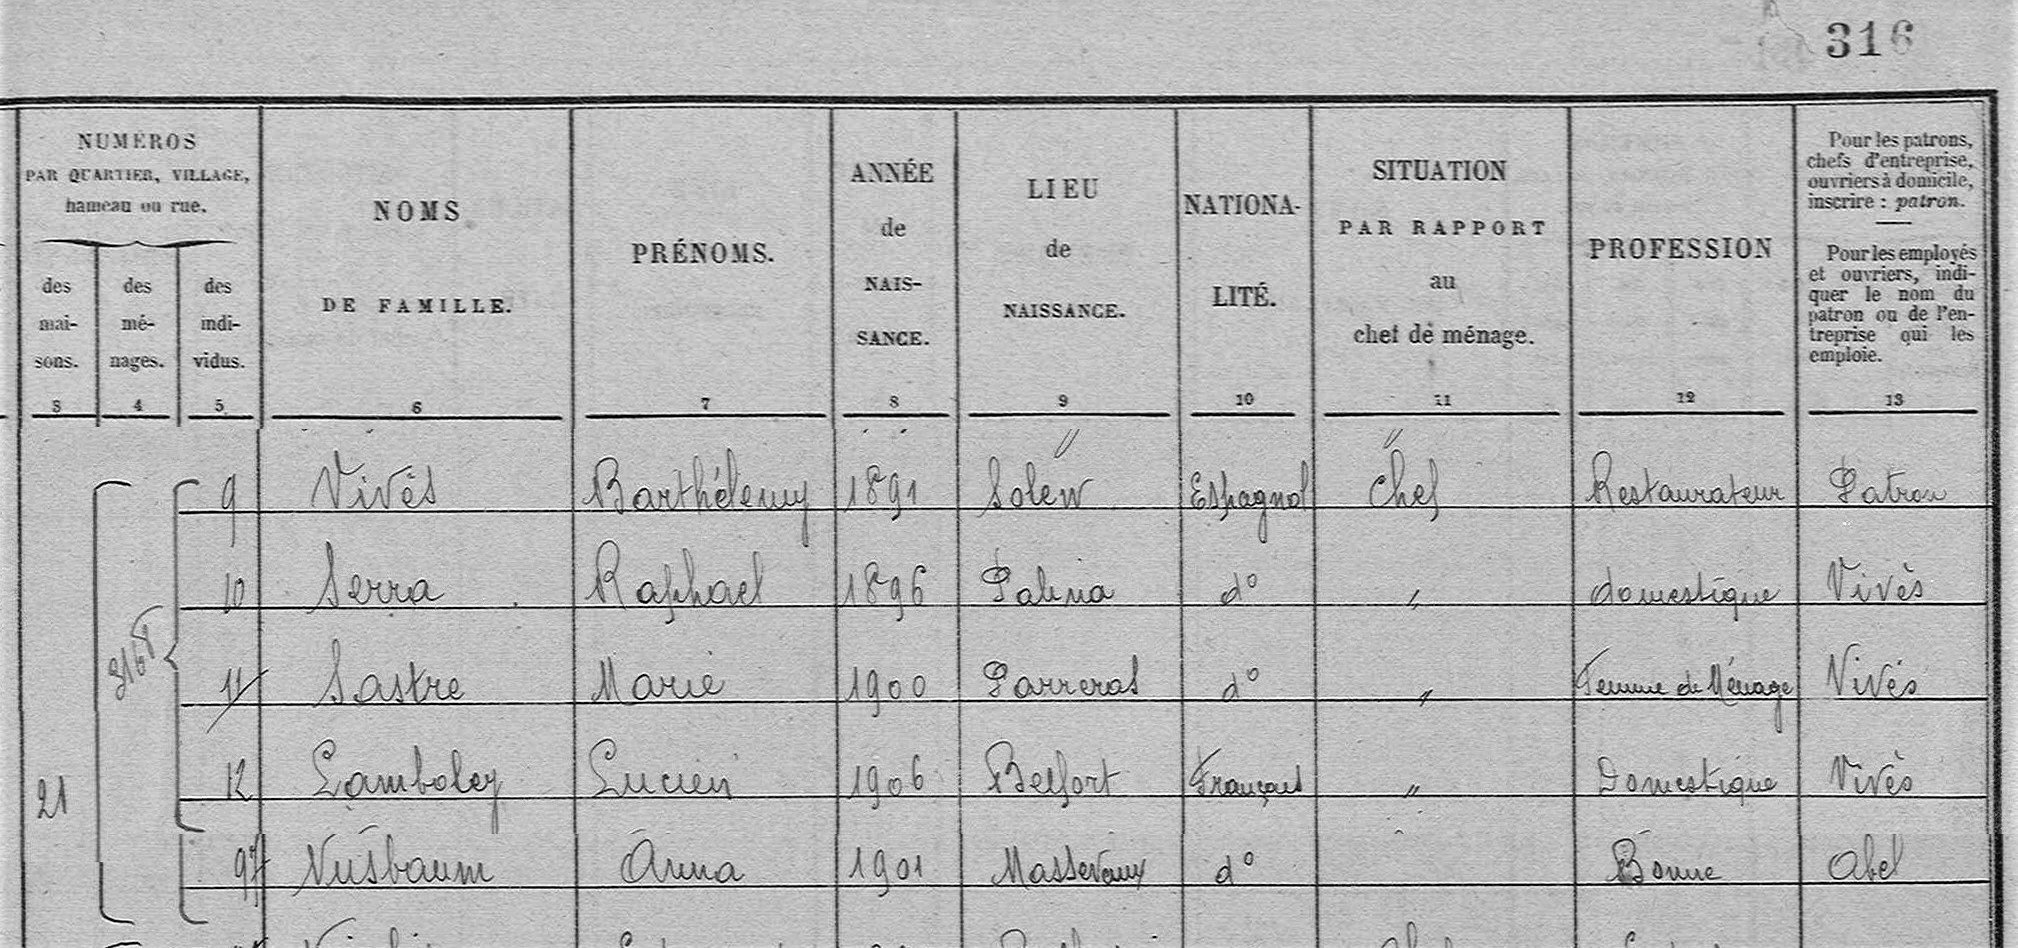 316
NUMÉROS
PAR QUARTIER, VILLAGE,
hameau ou rue.
des maisons.
des ménages.
des individus.
NOMS
DE FAMILLE.
PRÉNOMS.
ANNÉE
de
NAIS-
SANCE.
LIEU
de
NAISSANCE.
NATIONA-
LITÉ.
SITUATION
PAR RAPPORT
au
chef de ménage.
PROFESSION
Pour les patrons,
chefs d'entreprise,
ouvriers à domicile,
inscrire : patron.
Pour les employés
et ouvriers, indi-
quer le nom du
patron ou de l'en-
treprise qui les
emploie.
3 4 5 6 7 8 9 10 11 12 13
" "
9 Vivès Barthélemy 1891 Solew Espagnol Chef Restaurateur Patron
10 Serra Raphael 1896 Palma d° " domestique Vivès
11 Sastre Marie 1900 Parreras d° " Femme de Ménage Vivès
21 12 Lamboley Lucien 1906 Belfort Français " Domestique Vivès
97 Nusbaum Anna 1901 Massevaux d° Bonne Abel